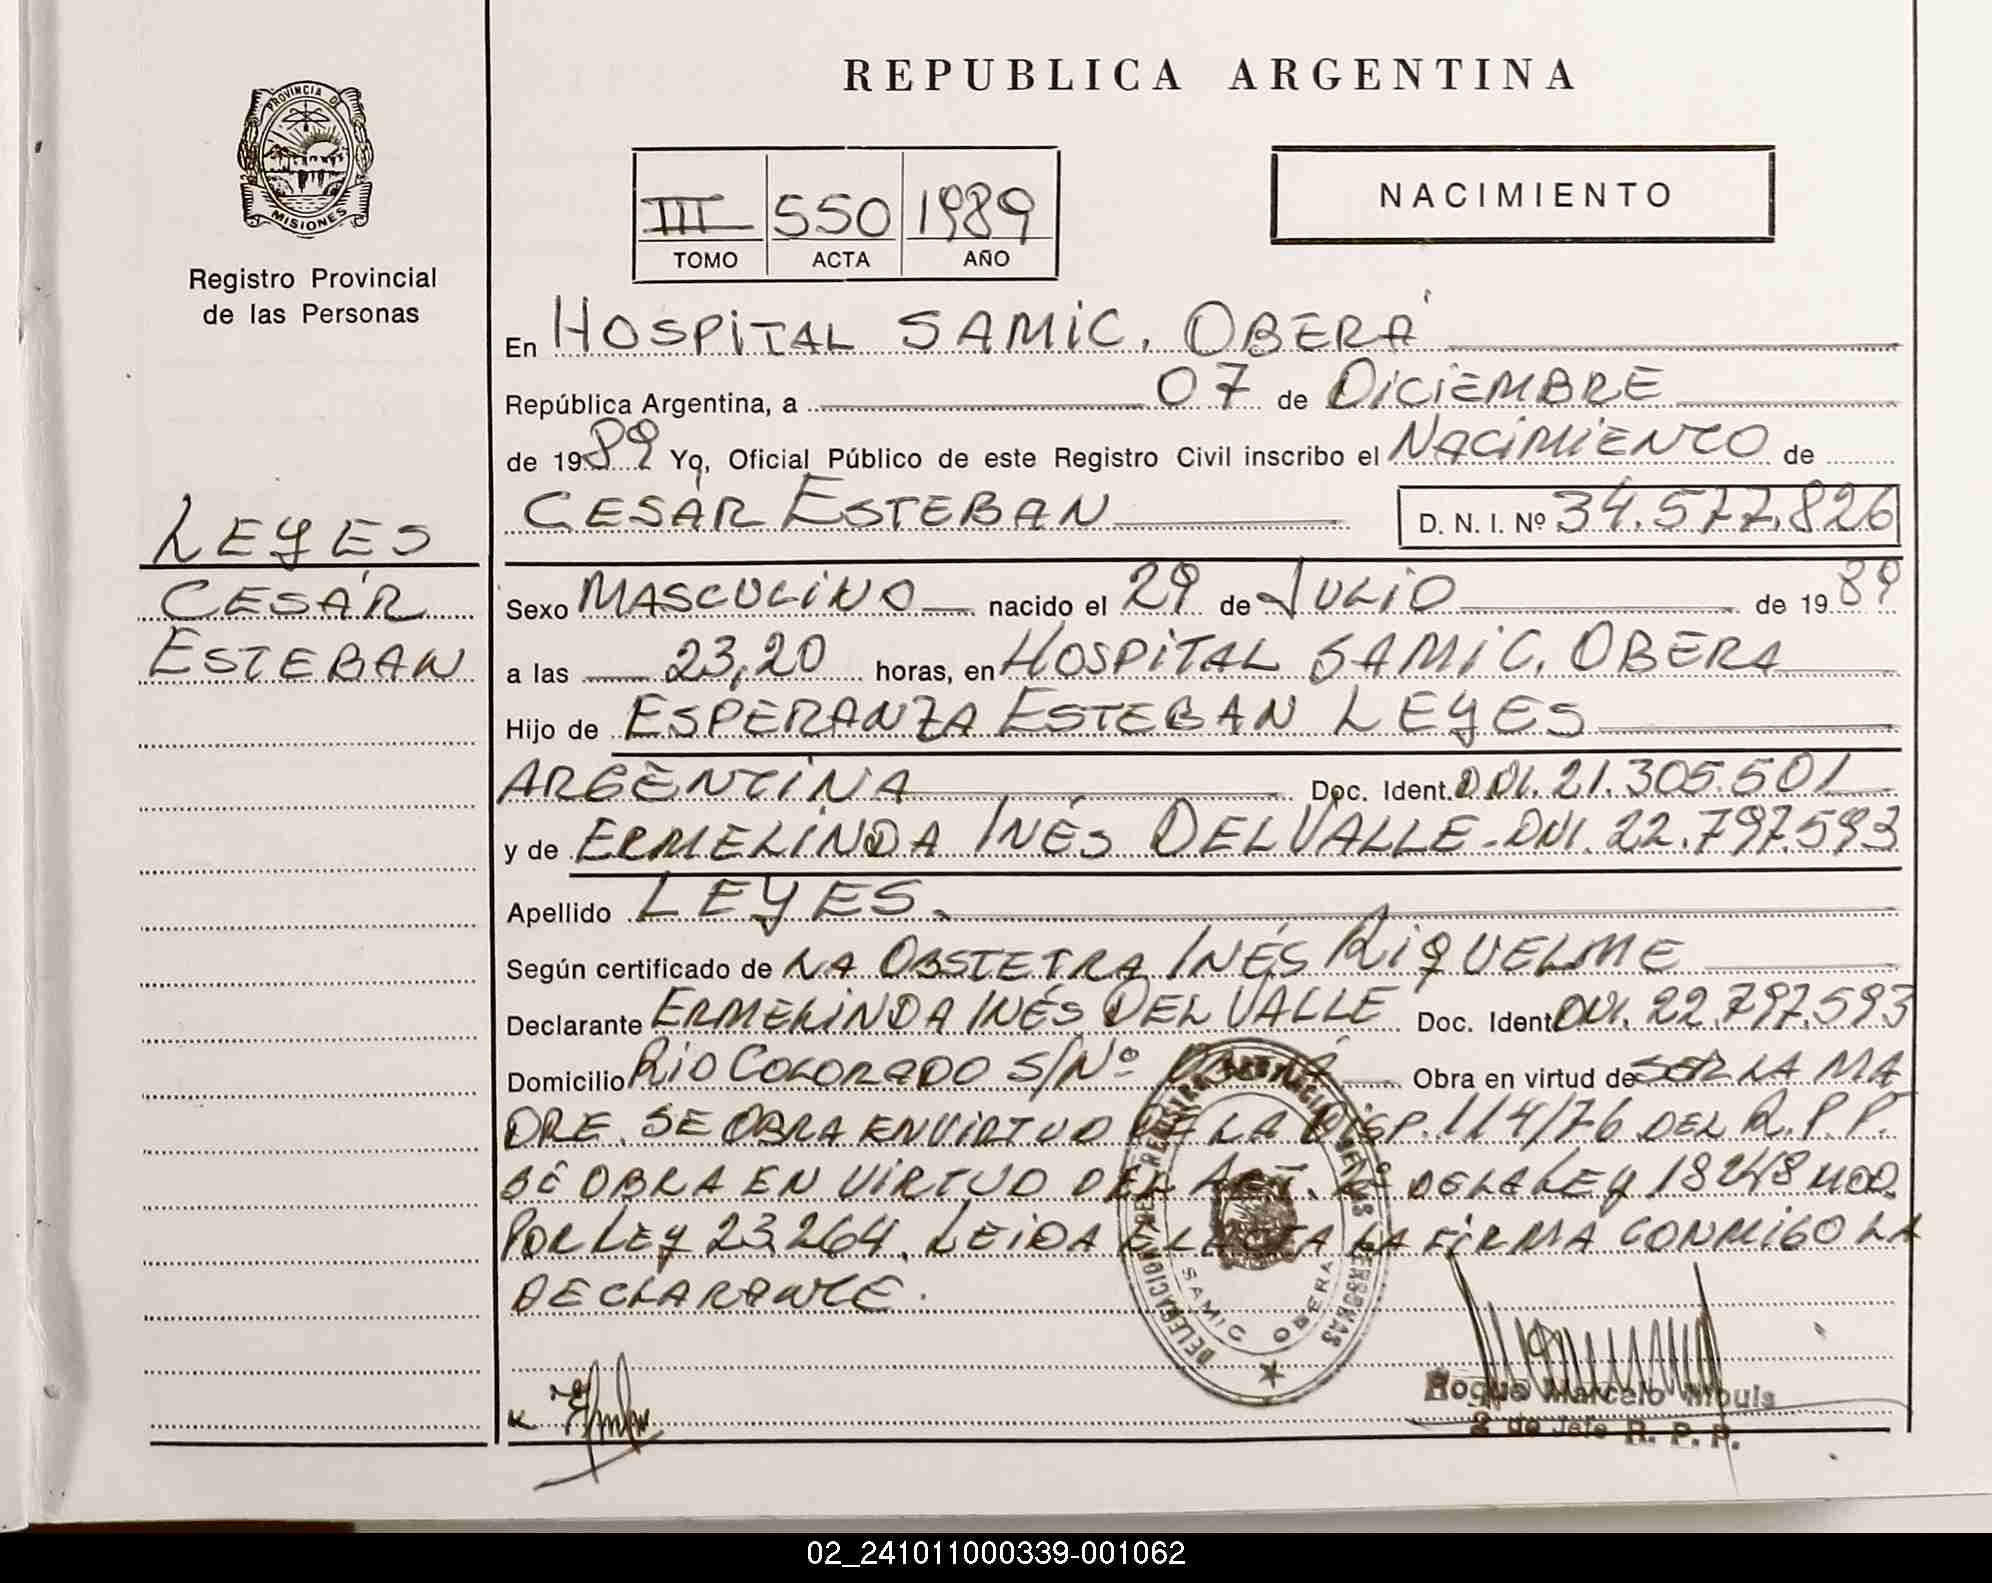 REPUBLICA ARGENTINA
PROVINCIA DE MISIONES
Registro Provincial
de las Personas
NACIMIENTO
III 550 1989
TOMO ACTA AÑO
En HOSPITAL SAMIC. OBERÁ
República Argentina, a 07 de DICIEMBRE
de 1989 Yo, Oficial Público de este Registro Civil inscribo el NACIMIENTO de
CESAR ESTEBAN D. N. I. Nº 34.577.826
LEYES
CESAR
ESTEBAN
Sexo MASCULINO nacido el 29 de JULIO de 1989
a las 23,20 horas, en HOSPITAL SAMIC. OBERA
Hijo de ESPERANZA ESTEBAN LEYES
ARGENTINA Doc. Ident. DNI. 21.305.501
y de ERMELINDA INÉS DEL VALLE - DNI. 22.797.593
Apellido LEYES.
Según certificado de LA OBSTETRA INÉS RIQUELME
Declarante ERMELINDA INÉS DEL VALLE Doc. Ident. DNI. 22.797.593
Domicilio RIO COLORADO S/Nº Obra en virtud de SER LA MA
DRE. SE OBRA EN VIRTUD DE LA DISP. 114/76 DEL R.P.P.
SE OBRA EN VIRTUD DEL ART. 2º DE LA LEY 18248 MOD.
POR LEY 23.264. LEIDA EL ACTA LA FIRMA CONMIGO LA
DECLARANTE.
DELEGACION DE REGISTRO DE LAS PERSONAS
SAMIC OBERA
Roque Marcelo
2 do Jefe R. P. P.
02_241011000339-001062